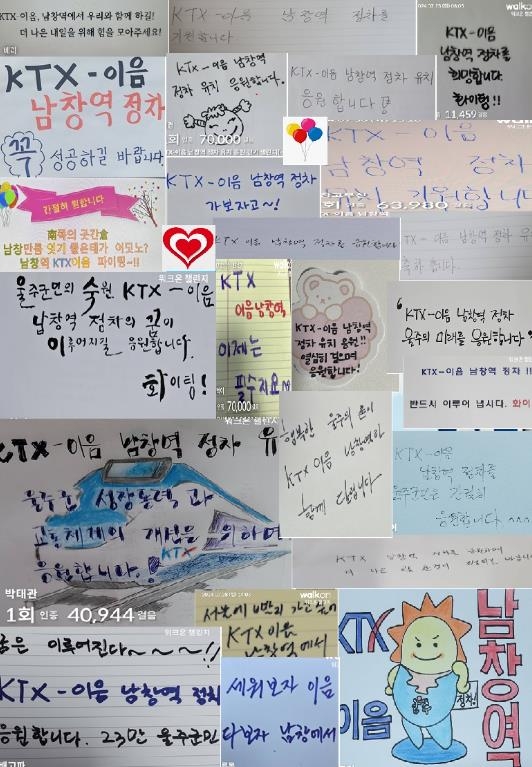 KTX-이음, 남창역에서 우리와 함께 하길!
더 나은 내일을 위해 힘을 모아주세요!
KTX-이음 남창역 정차를
기원합니다
walkon
KTX-이음
남창역 정차를
희망합니다.
화이팅!!
11,459 걸음
KTX-이음
남창역 정차
꼭 성공하길 바랍니다
KTX-이음 남창역
정차 유치 응원합니다.
70,000 걸음
KTX-이음 남창역 정차 유치
응원합니다
KTX-이음
남창역 정차
기원합니다
63,980 걸음
KTX-이음 남창역 정차
가보자고~!
간절히 원합니다
남창역 KTX이음 파이팅~!!
KTX 이음 남창역 정차를
KTX-이음 남창역 정차
워크온 챌린지
울주군민의 숙원 KTX-이음
남창역 정차의 꿈이
이루어지길 응원합니다.
화이팅!
KTX
이음남창역
이제는
필수지요
70,000 걸음
KTX-이음 남창역
정차 유치 응원!!
열심히 걸으며
응원합니다!
KTX-이음 남창역 정차
울주의 미래를 응원합니다
KTX-이음 남창역 정차 !!
반드시 이루어 냅시다. 화이
KTX-이음 남창역 정차 유
울주군 성장동력 과
교통체계의 개선을 위하며
응원합니다!
KTX
박대관
1회 인증 40,944 걸음
행복한 울주의 꿈이
KTX 이음 남창역과
함께 달립니다
KTX-이음
남창역 정차를
울주군민은 간절히
응원합니다 ^^^
KTX 남창역
walkon
KTX 이음
남창역에서
워크온 챌린지
은 이루어진다~~~~!!
KTX-이음 남창역 정차
응원합니다. 23만 울주군민
세워보자 이음
타보자 남창에서
KTX
이음
남창역
울주
정차!